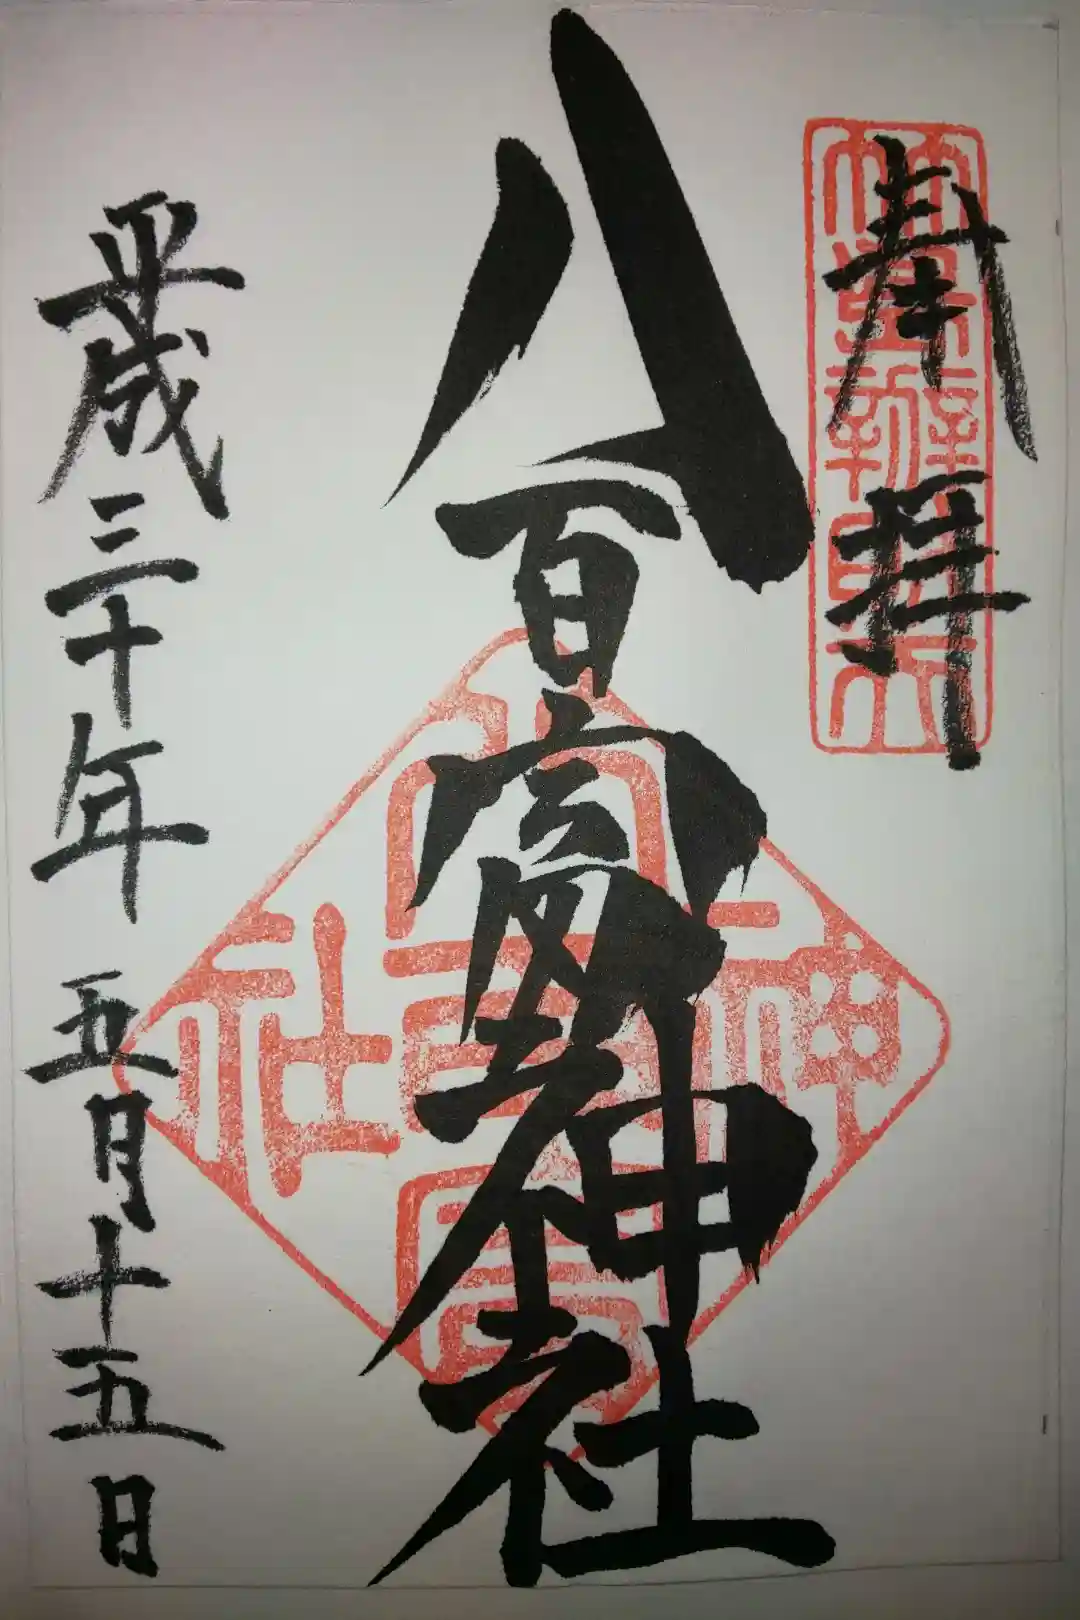 奉拝
竹島辨財天
八百富神社
八百富神社
平成三十年 五月十五日